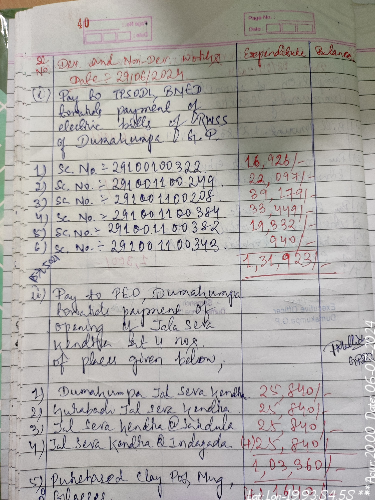 40
Page No.
Date
Sl. No. Dev and Non-Dev. Works Expenditure Balance
Date - 29/06/2024
(i) Pay to TPSODL, BNED
towards payment of
electric bills of RWSS
of Dumahumpa G.P.
1) Sc. No. = 29100100322 16,926/-
2) Sc. No. = 291001100249 22,097/-
3) Sc. No. = 291001100238 39,179/-
4) Sc. No. = 291001100384 33,449/-
5) Sc. No. = 291001100382 19,332/-
6) Sc. No. = 291001100343 940/-
1,31,923/-
ii) Pay to PEO, Dumahumpa
towards payment of
opening of Jala Seva
Kendra at 4 nos.
of places given below,
1) Dumahumpa Jal Seva Kendra 25,840/-
2) Jal Seva Kendra 25,840/-
3) Jal Seva Kendra @ 25,840/-
4) Jal Seva Kendra @ Indragada (+) 25,840/-
1,03,360/-
5) Purchased Clay Pot, Mug,